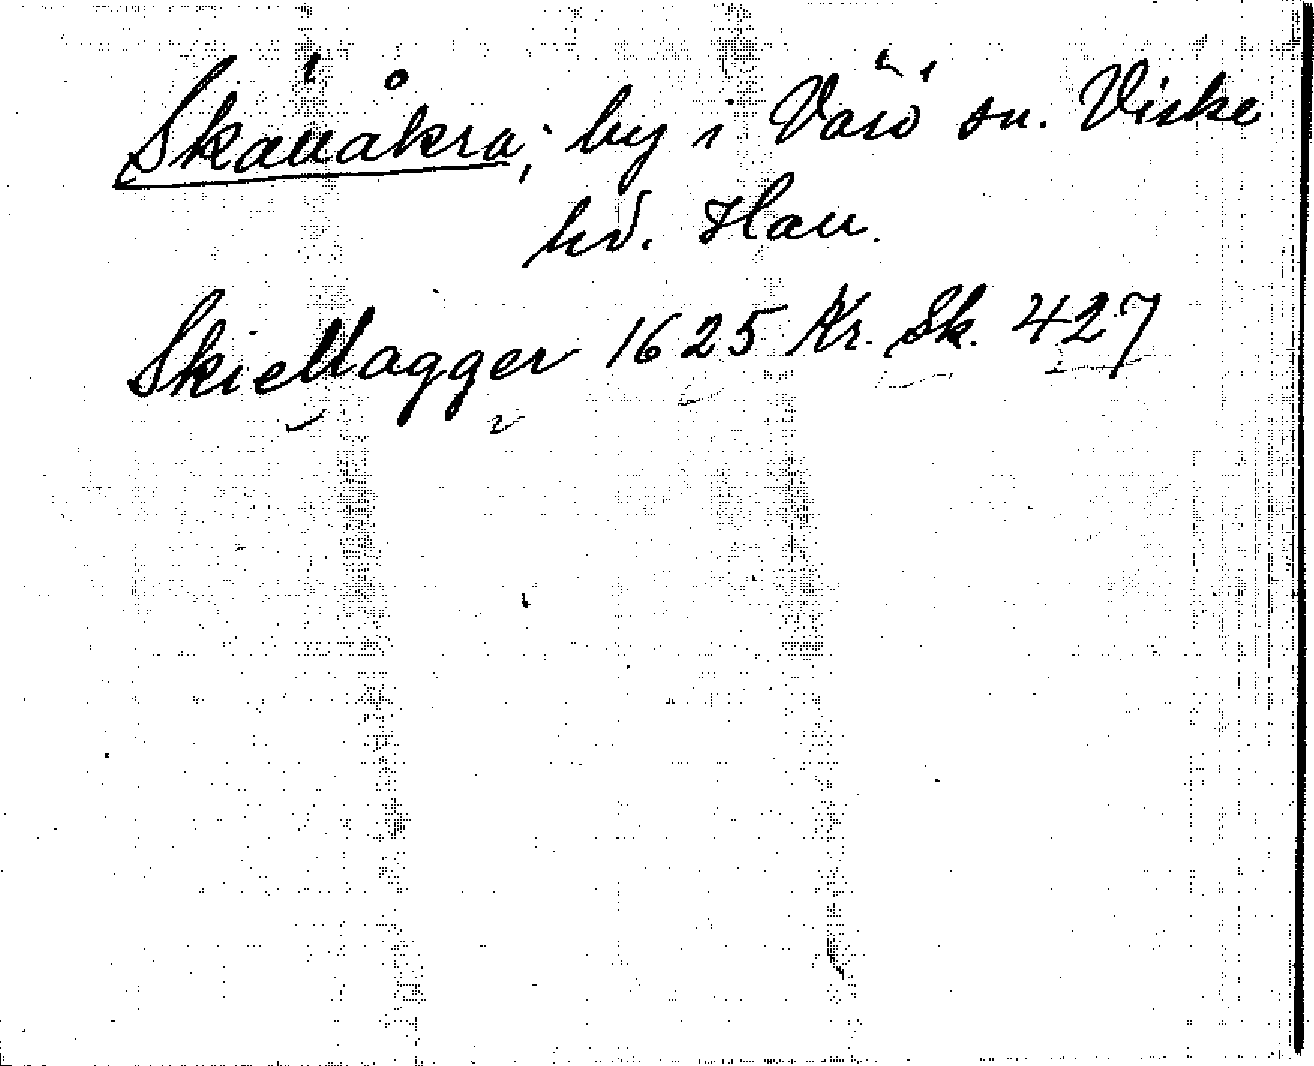 Skällåkra; by i Värö sn. Viske
hd. Hall.
Skiellagger 1625 Kr. Sk. 427